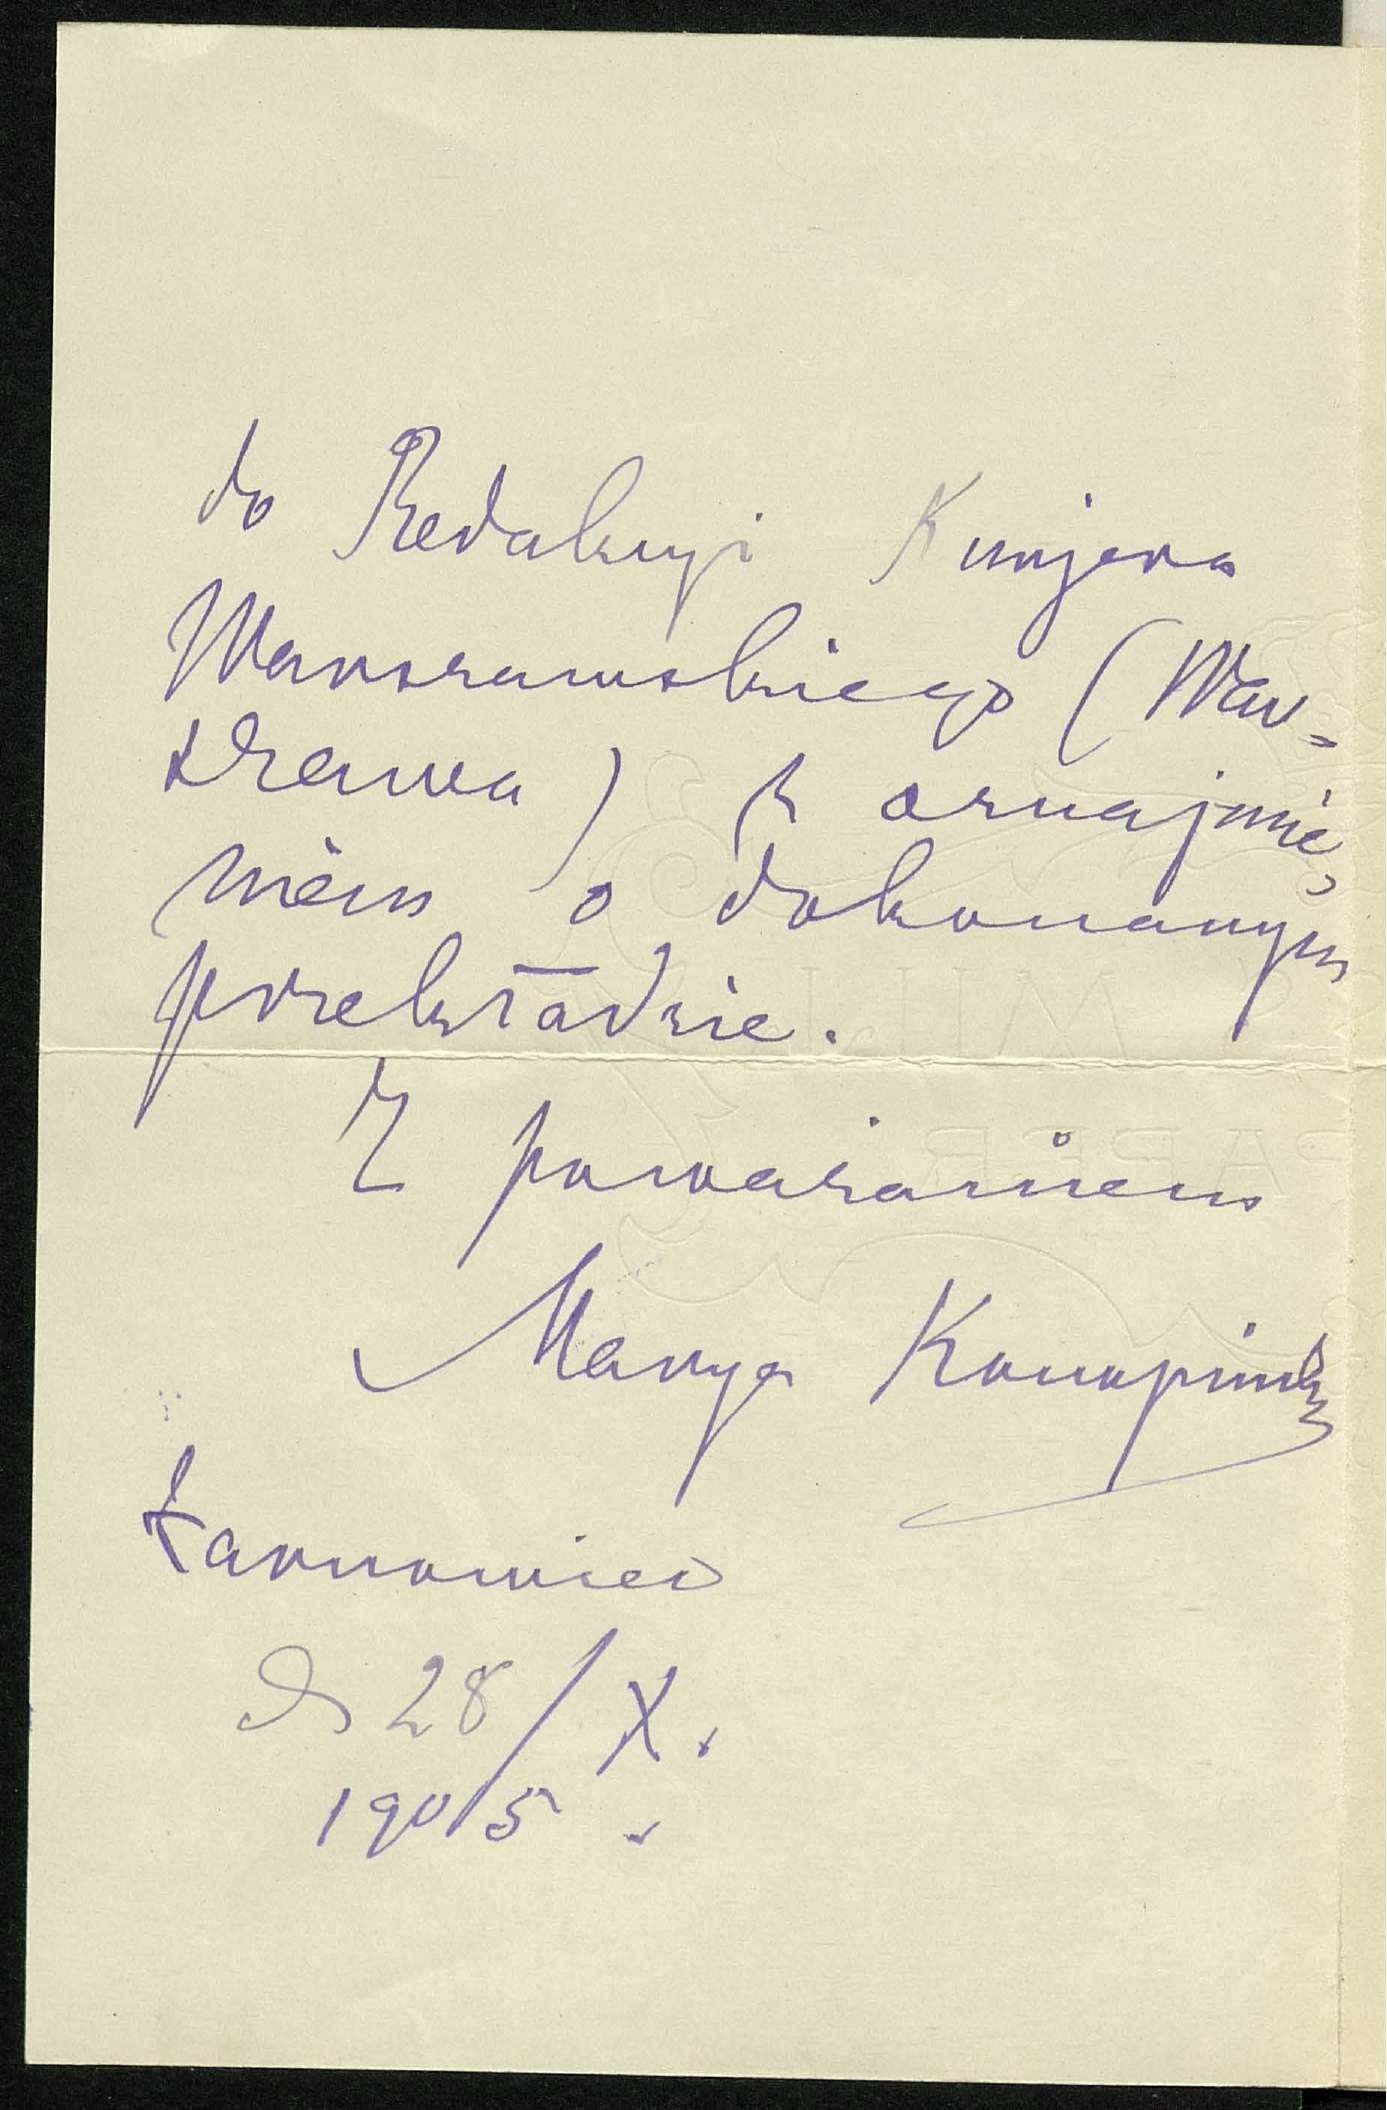 do Redakcyi Kurjera
Warszawskiego (War=
szawa) z oznajmie=
niem o dokonanym
przekładzie.
Z poważaniem
Marya Konopnicka
Żarnowiec
d 28/X.
1905.